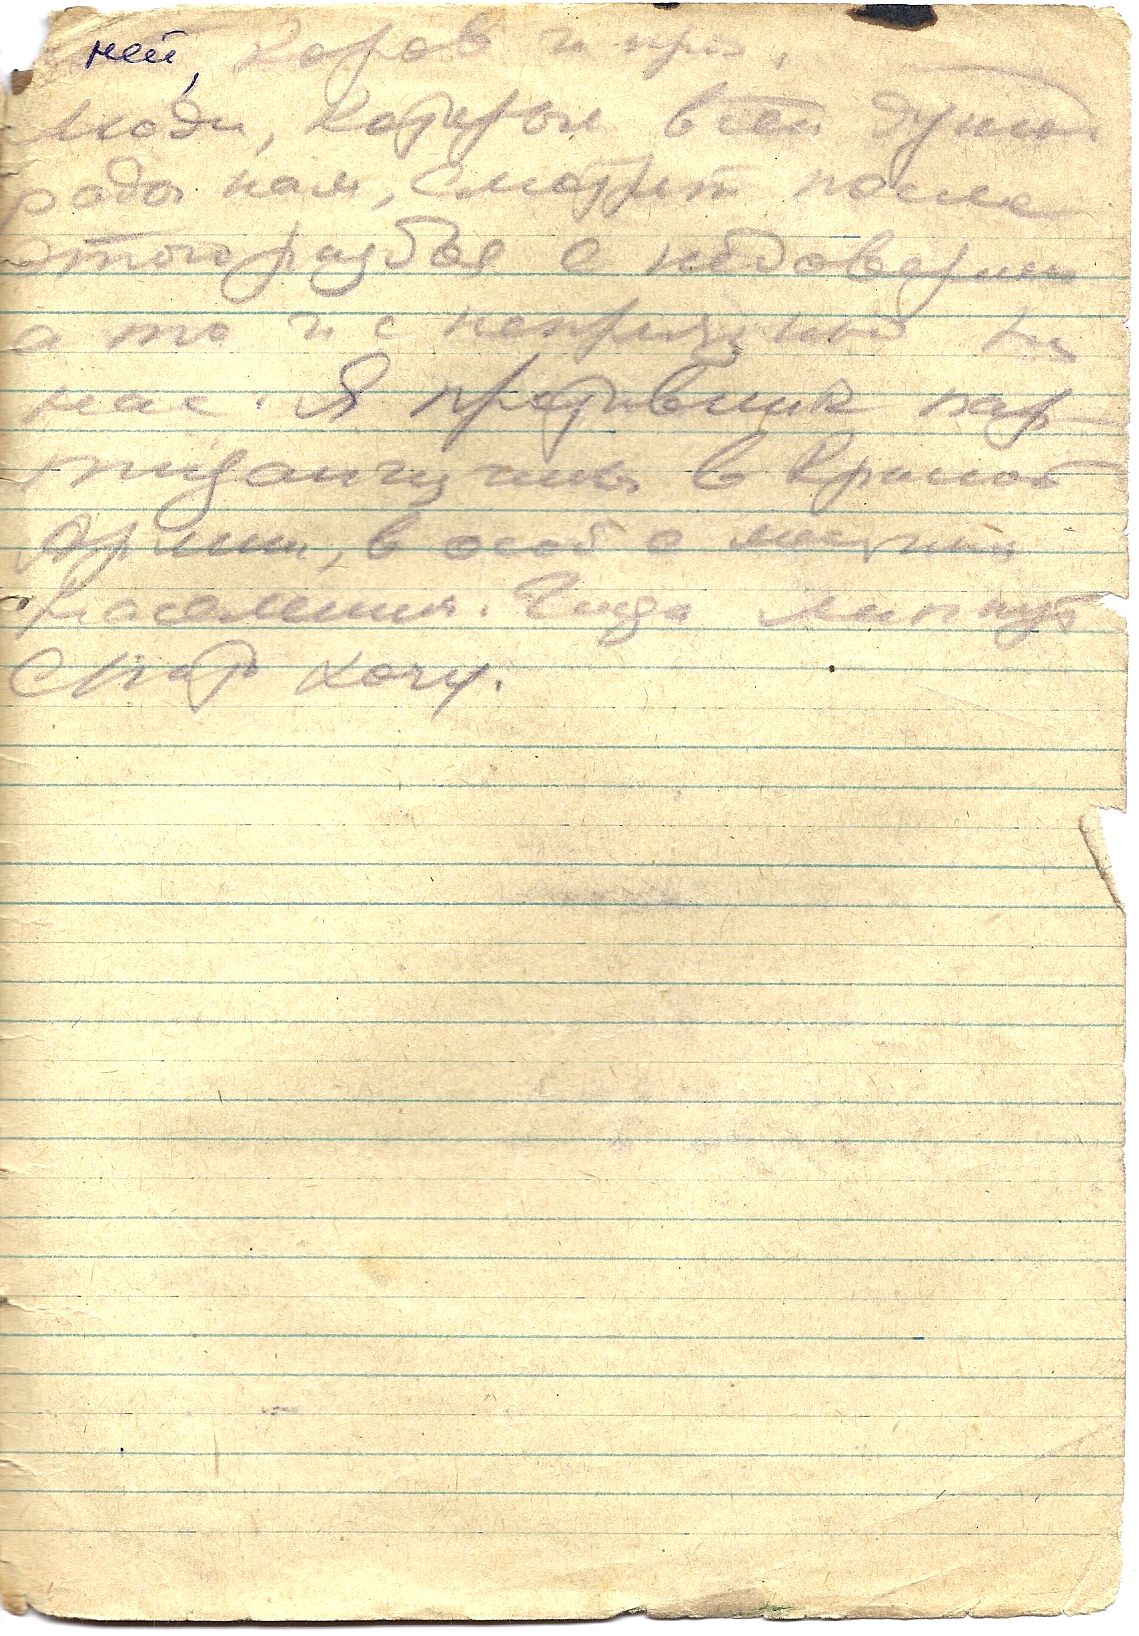 ней, коров и пр.
Люди, которые всей душой
рады нам, смотрят после
этого разбоя с недоверием
а то и с неприязнью на
нас. Я противник пар
тизанщины в Красной
Армии, в особ о местным
населения.
спать хочу.